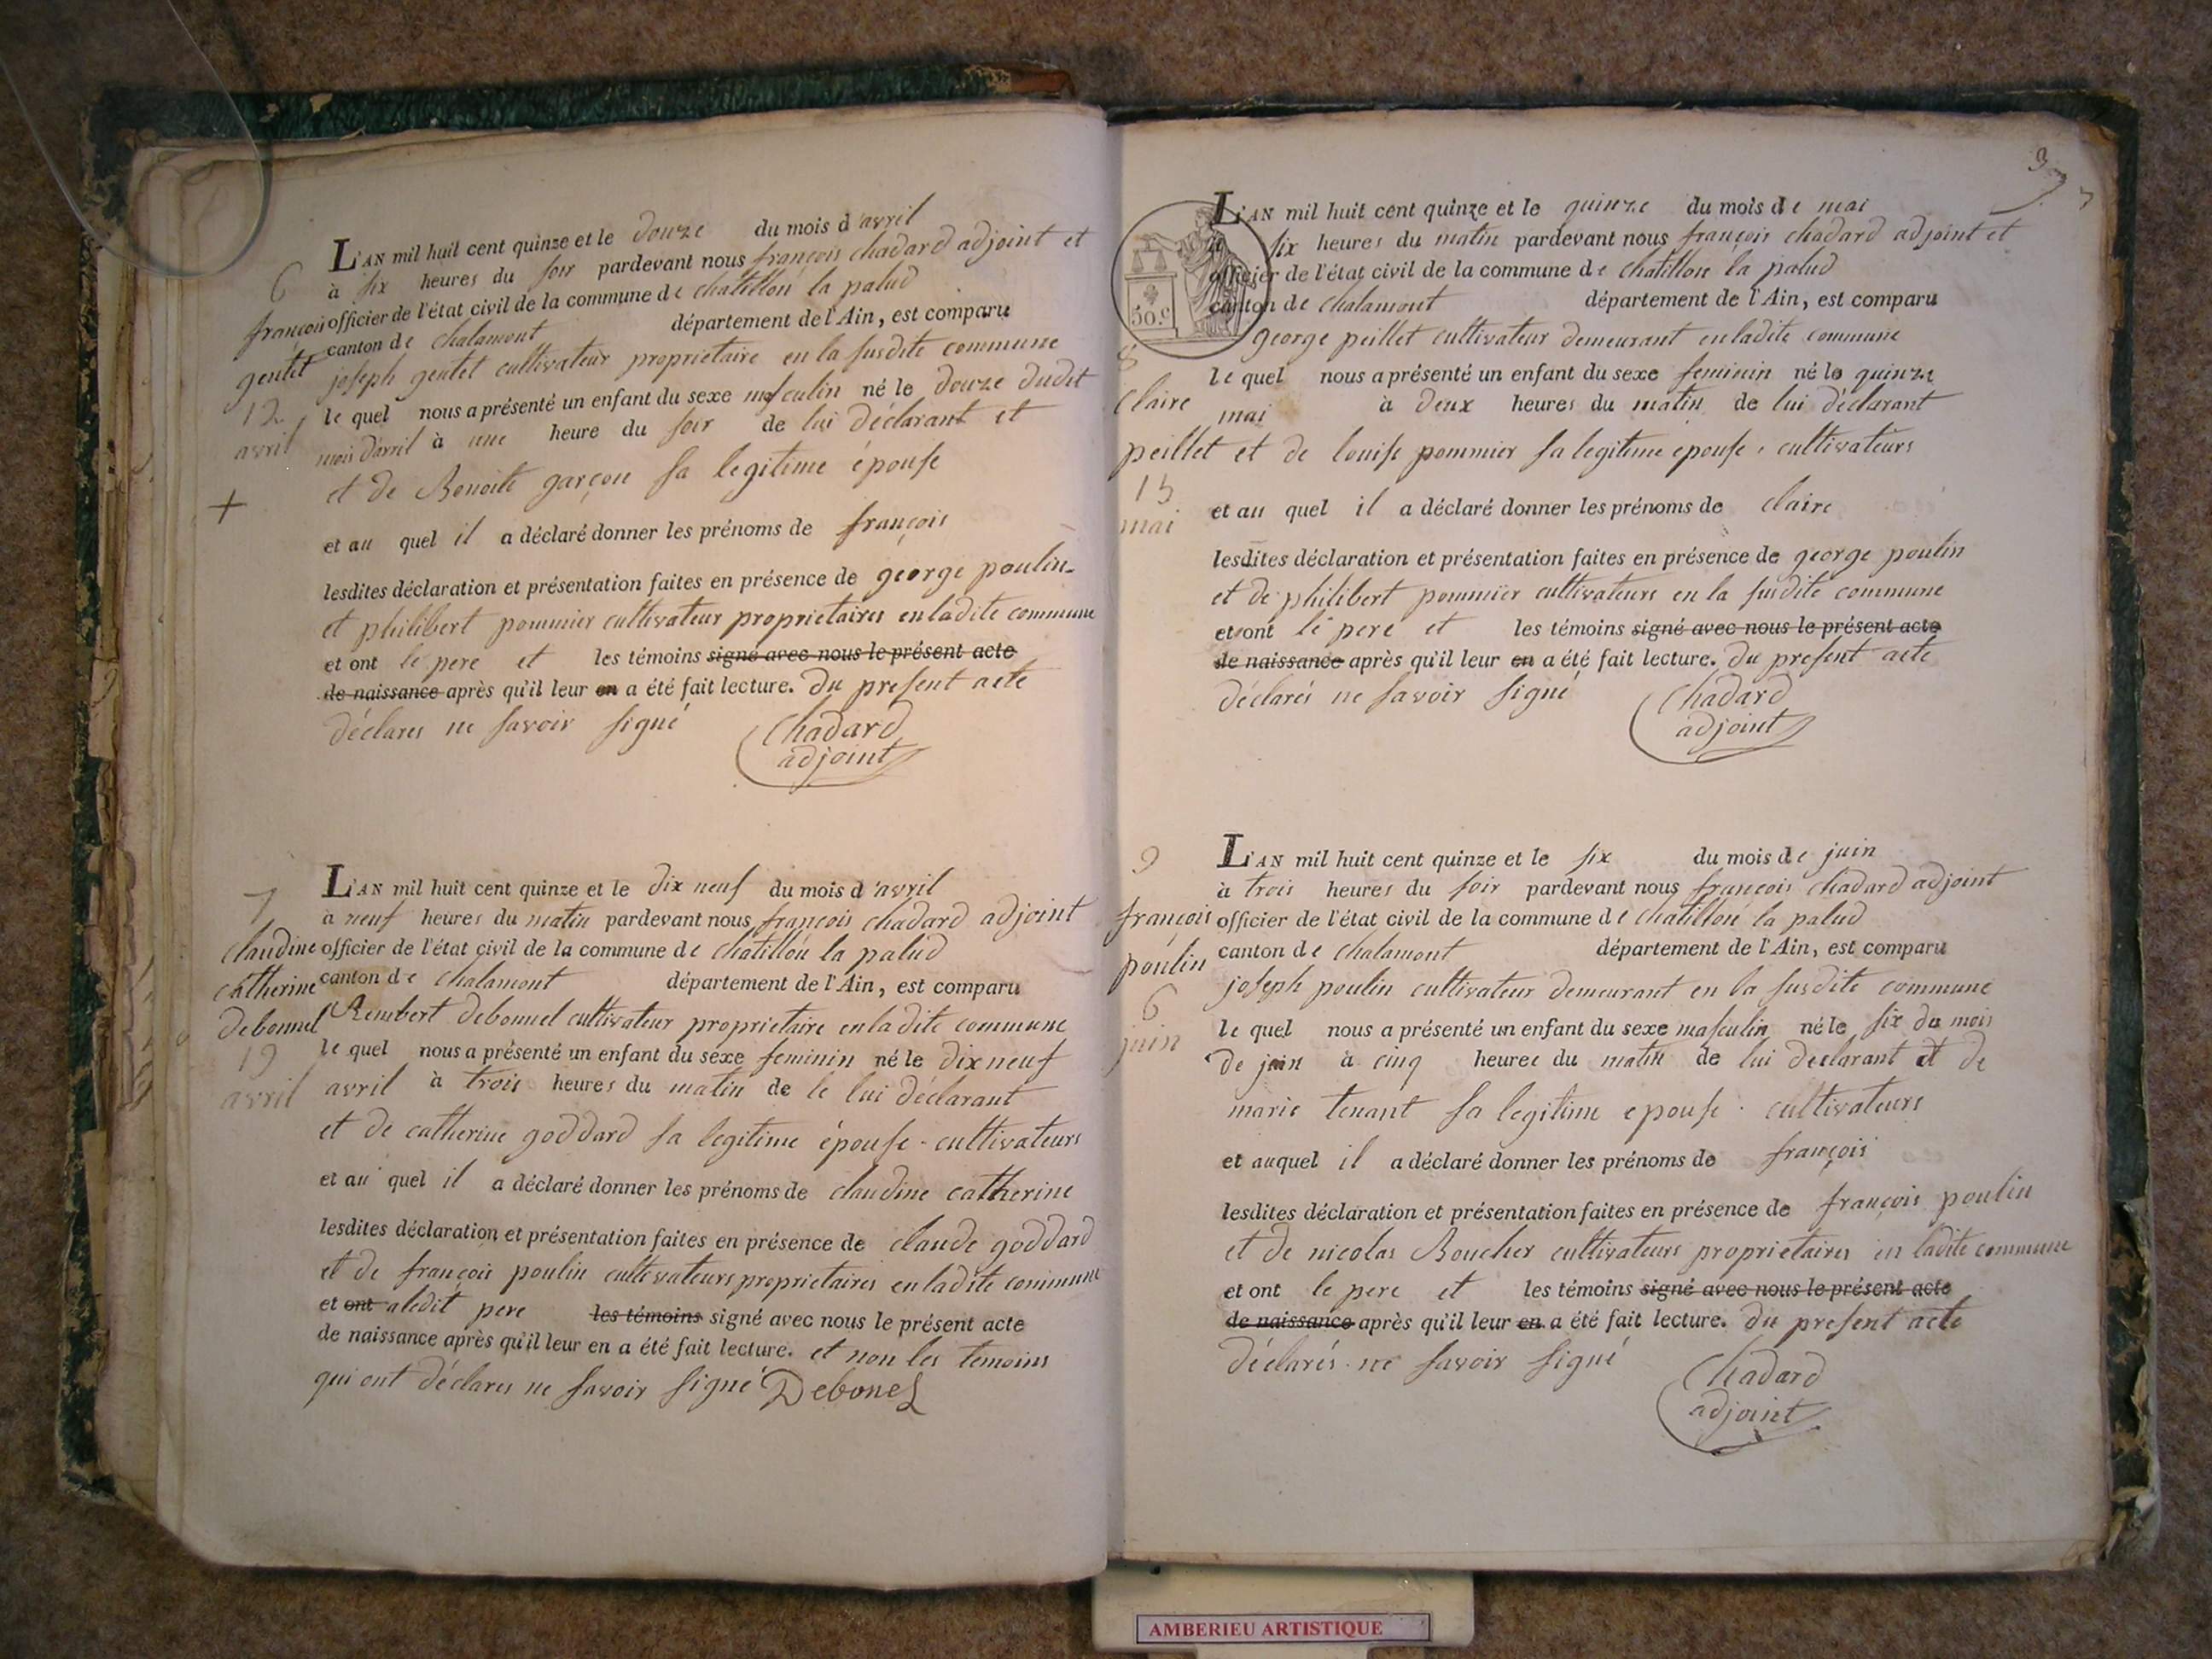 L'AN mil huit cent quinze et le douze du mois d'avril
à six heures du soir pardevant nous françois chadard adjoint et
officier de l'état civil de la commune de chatillon la palud
canton de chalamont département de l'Ain, est comparu
joseph gentet cultivateur proprietaire en la susdite commune
le quel nous a présenté un enfant du sexe masculin né le douze dudit
mois d'avril à une heure du soir de lui déclarant et
et de Benoite garçon sa legitime épouse
et au quel il a déclaré donner les prénoms de françois
lesdites déclaration et présentation faites en présence de george poulin
et philibert pommier cultivateur proprietaires en ladite commune
et ont le pere et les témoins signé avec nous le présent acte
de naissance après qu'il leur en a été fait lecture. du present acte
déclares ne savoir signé
Chadard
adjoint
6
françois
gentet
12
avril
+
L'AN mil huit cent quinze et le dix neuf du mois d'avril
à neuf heures du matin pardevant nous françois chadard adjoint
officier de l'état civil de la commune de chatillon la palud
canton de chalamont département de l'Ain, est comparu
Rembert debonnel cultivateur proprietaire en ladite commune
le quel nous a présenté un enfant du sexe feminin né le dix neuf
avril à trois heures du matin de le lui déclarant
et de catherine goddard sa legitime épouse - cultivateurs
et au quel il a déclaré donner les prénoms de claudine catherine
lesdites déclaration et présentation faites en présence de claude goddard
et de françois poulin cultivateurs proprietaires en ladite commune
et ont ledit pere les témoins signé avec nous le présent acte
de naissance après qu'il leur en a été fait lecture. et non les temoins
qui ont déclares ne savoir signé Debonel
7
claudine
catherine
debonnel
19
avril
3
L'AN mil huit cent quinze et le quinze du mois de mai
à six heures du matin pardevant nous françois chadard adjoint et
officier de l'état civil de la commune de chatillon la palud
canton de chalamont département de l'Ain, est comparu
george peillet cultivateur demeurant en ladite commune
le quel nous a présenté un enfant du sexe feminin né le quinze
mai à deux heures du matin de lui déclarant
et de louise pommier sa legitime epouse, cultivateurs
et au quel il a déclaré donner les prénoms de claire
lesdites déclaration et présentation faites en présence de george poulin
et de philibert pommier cultivateurs en la susdite commune
et ont le pere et les témoins signé avec nous le présent acte
de naissance après qu'il leur en a été fait lecture. du present acte
déclarés ne savoir signé
Chadard
adjoint
50.c
8
claire
peillet
15
mai
L'AN mil huit cent quinze et le six du mois de juin
à trois heures du soir pardevant nous françois chadard adjoint
officier de l'état civil de la commune de chatillon la palud
canton de chalamont département de l'Ain, est comparu
joseph poulin cultivateur demeurant en la susdite commune
le quel nous a présenté un enfant du sexe masculin né le six du mois
de juin à cinq heures du matin de lui declarant et de
marie tenant sa legitime epouse . cultivateurs
et auquel il a déclaré donner les prénoms de françois
lesdites déclaration et présentation faites en présence de françois poulin
et de nicolas Boucher cultivateurs proprietaires en ladite commune
et ont le pere et les témoins signé avec nous le présent acte
de naissance après qu'il leur en a été fait lecture. du present acte
déclarés ne savoir signé
Chadard
adjoint
9
françois
poulin
6
juin
AMBERIEU ARTISTIQUE